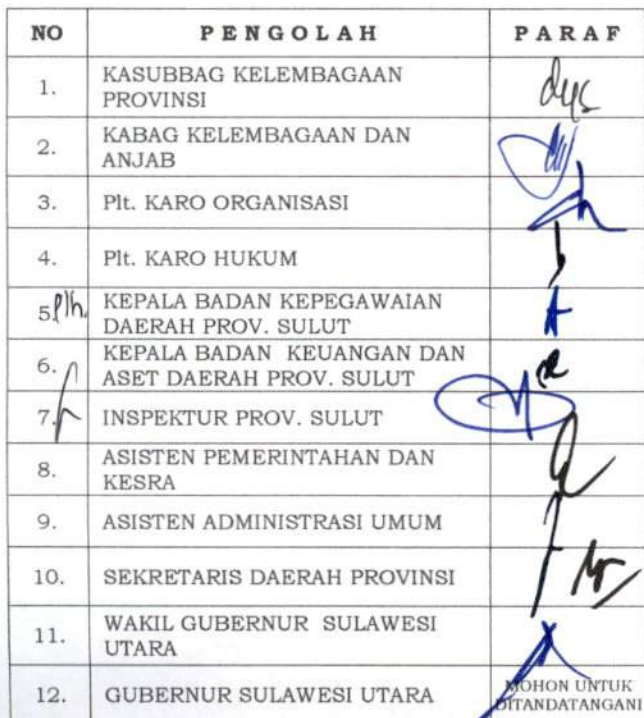 NO PENGOLAH PARAF
1. KASUBBAG KELEMBAGAAN
PROVINSI
2. KABAG KELEMBAGAAN DAN
ANJAB
3. Plt. KARO ORGANISASI
4. Plt. KARO HUKUM
5. Plh. KEPALA BADAN KEPEGAWAIAN
DAERAH PROV. SULUT
6. KEPALA BADAN KEUANGAN DAN
ASET DAERAH PROV. SULUT
7. INSPEKTUR PROV. SULUT
8. ASISTEN PEMERINTAHAN DAN
KESRA
9. ASISTEN ADMINISTRASI UMUM
10. SEKRETARIS DAERAH PROVINSI
11. WAKIL GUBERNUR SULAWESI
UTARA
12. GUBERNUR SULAWESI UTARA MOHON UNTUK
DITANDATANGANI